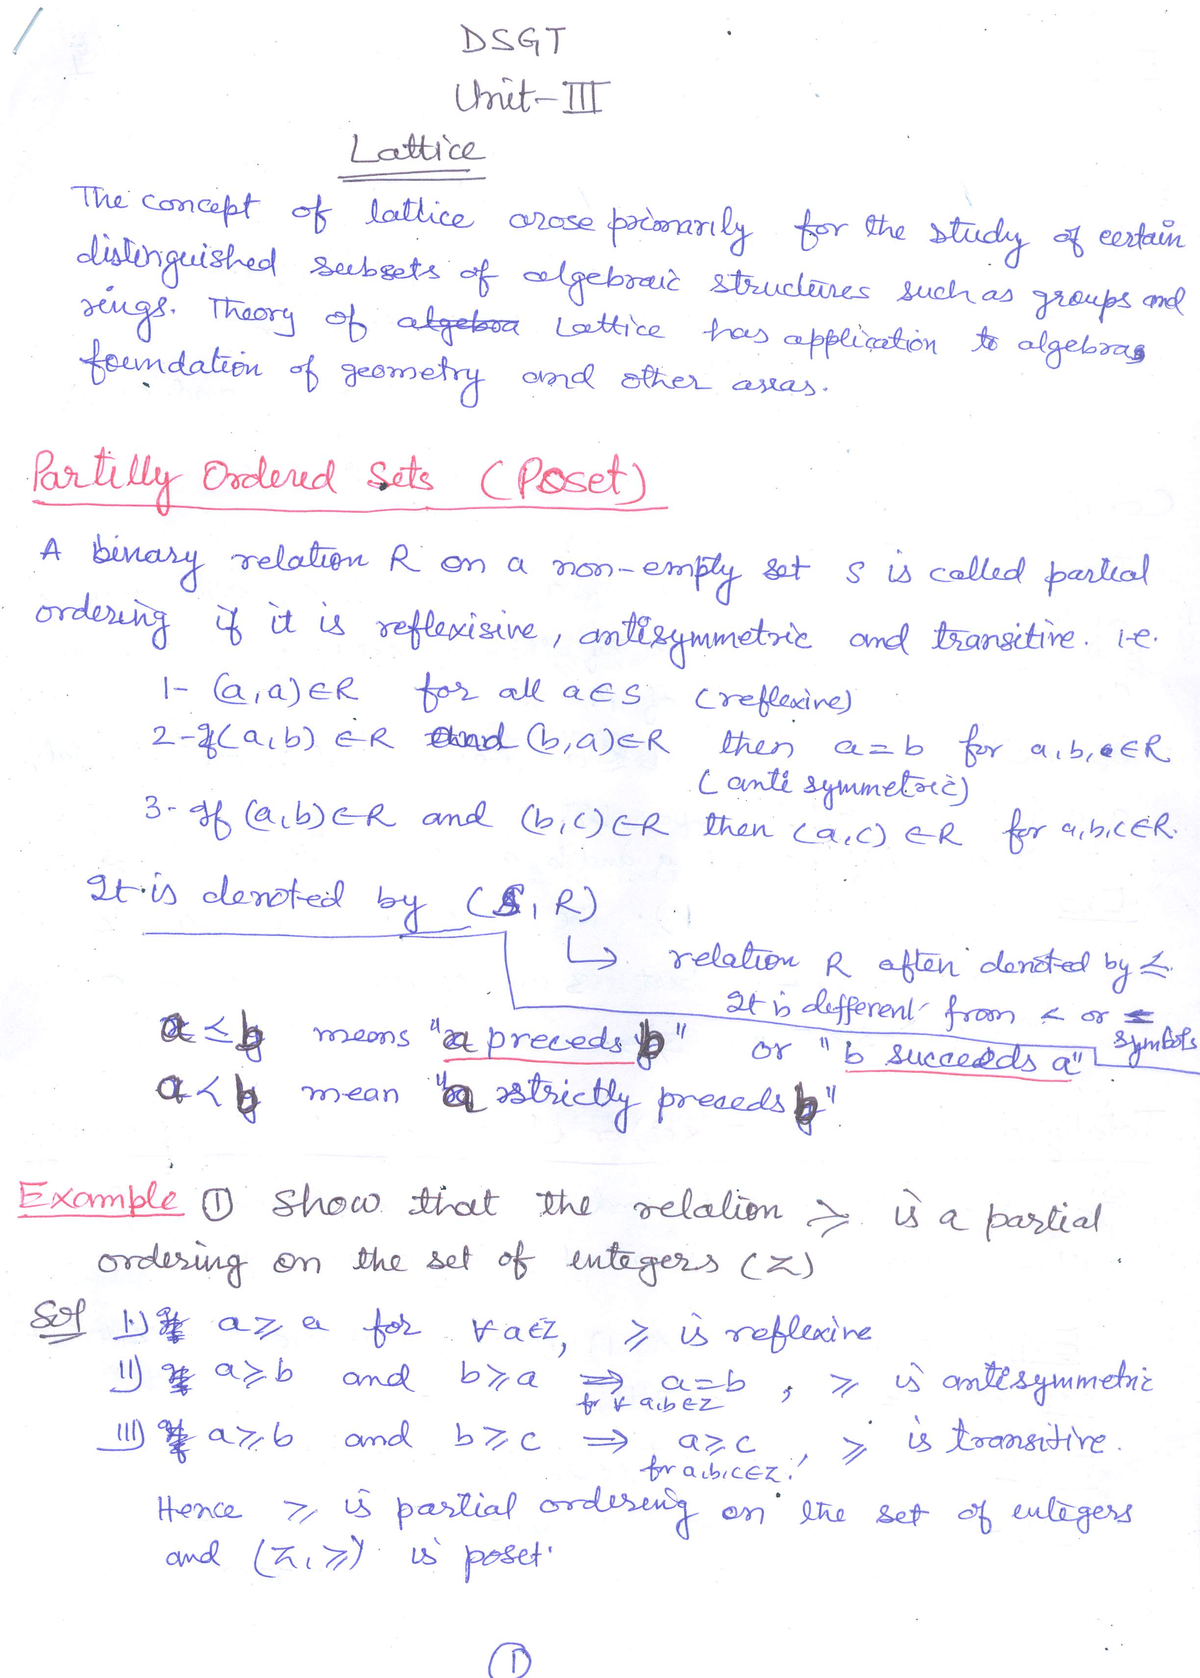 DSGT
Unit-III
Lattice
The concept of lattice arose primarily for the study of certain
distinguished subsets of algebraic structures such as groups and
rings. Theory of algebra Lattice has application to algebras
foundation of geometry and other areas.
Partilly Ordered Sets (Poset)
A binary relation R on a non-empty set S is called partial
ordering if it is reflexisive, antisymmetric and transitive. i.e.
1- (a,a)∈R for all a∈S (reflexive)
2- If (a,b) ∈R and (b,a)∈R then a=b for a,b,∈R
(anti symmetric)
3- If (a,b)∈R and (b,c)∈R then (a,c) ∈R for a,b,c∈R.
It is denoted by (S, R)
↳ relation R often denoted by ≤.
It is different from < or ≤
symbols
a ≤ b means "a preceds b" or "b succeeds a"
a < b mean "a strictly preceds b"
Example ① Show that the relation ≥ is a partial
ordering on the set of integers (Z)
Sol i) a ≥ a for ∀ a∈Z, ≥ is reflexive
ii) a ≥ b and b ≥ a ⇒ a=b, ≥ is antisymmetric
for ∀ a,b∈Z
iii) a ≥ b and b ≥ c ⇒ a ≥ c, ≥ is transitive.
for a,b,c∈Z.
Hence ≥ is partial ordering on the set of integers
and (Z, ≥) is poset.
①